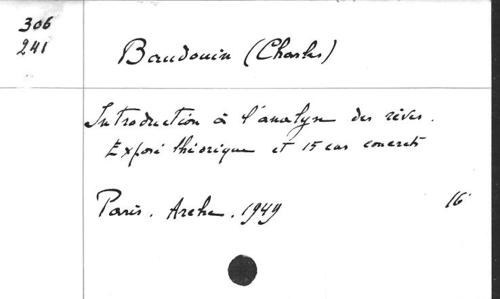 306
241
Baudouin (Charles)
Introduction à l'analyse des rêves.
Exposé théorique et 15 cas concrets
Paris. Arche. 1949
16°